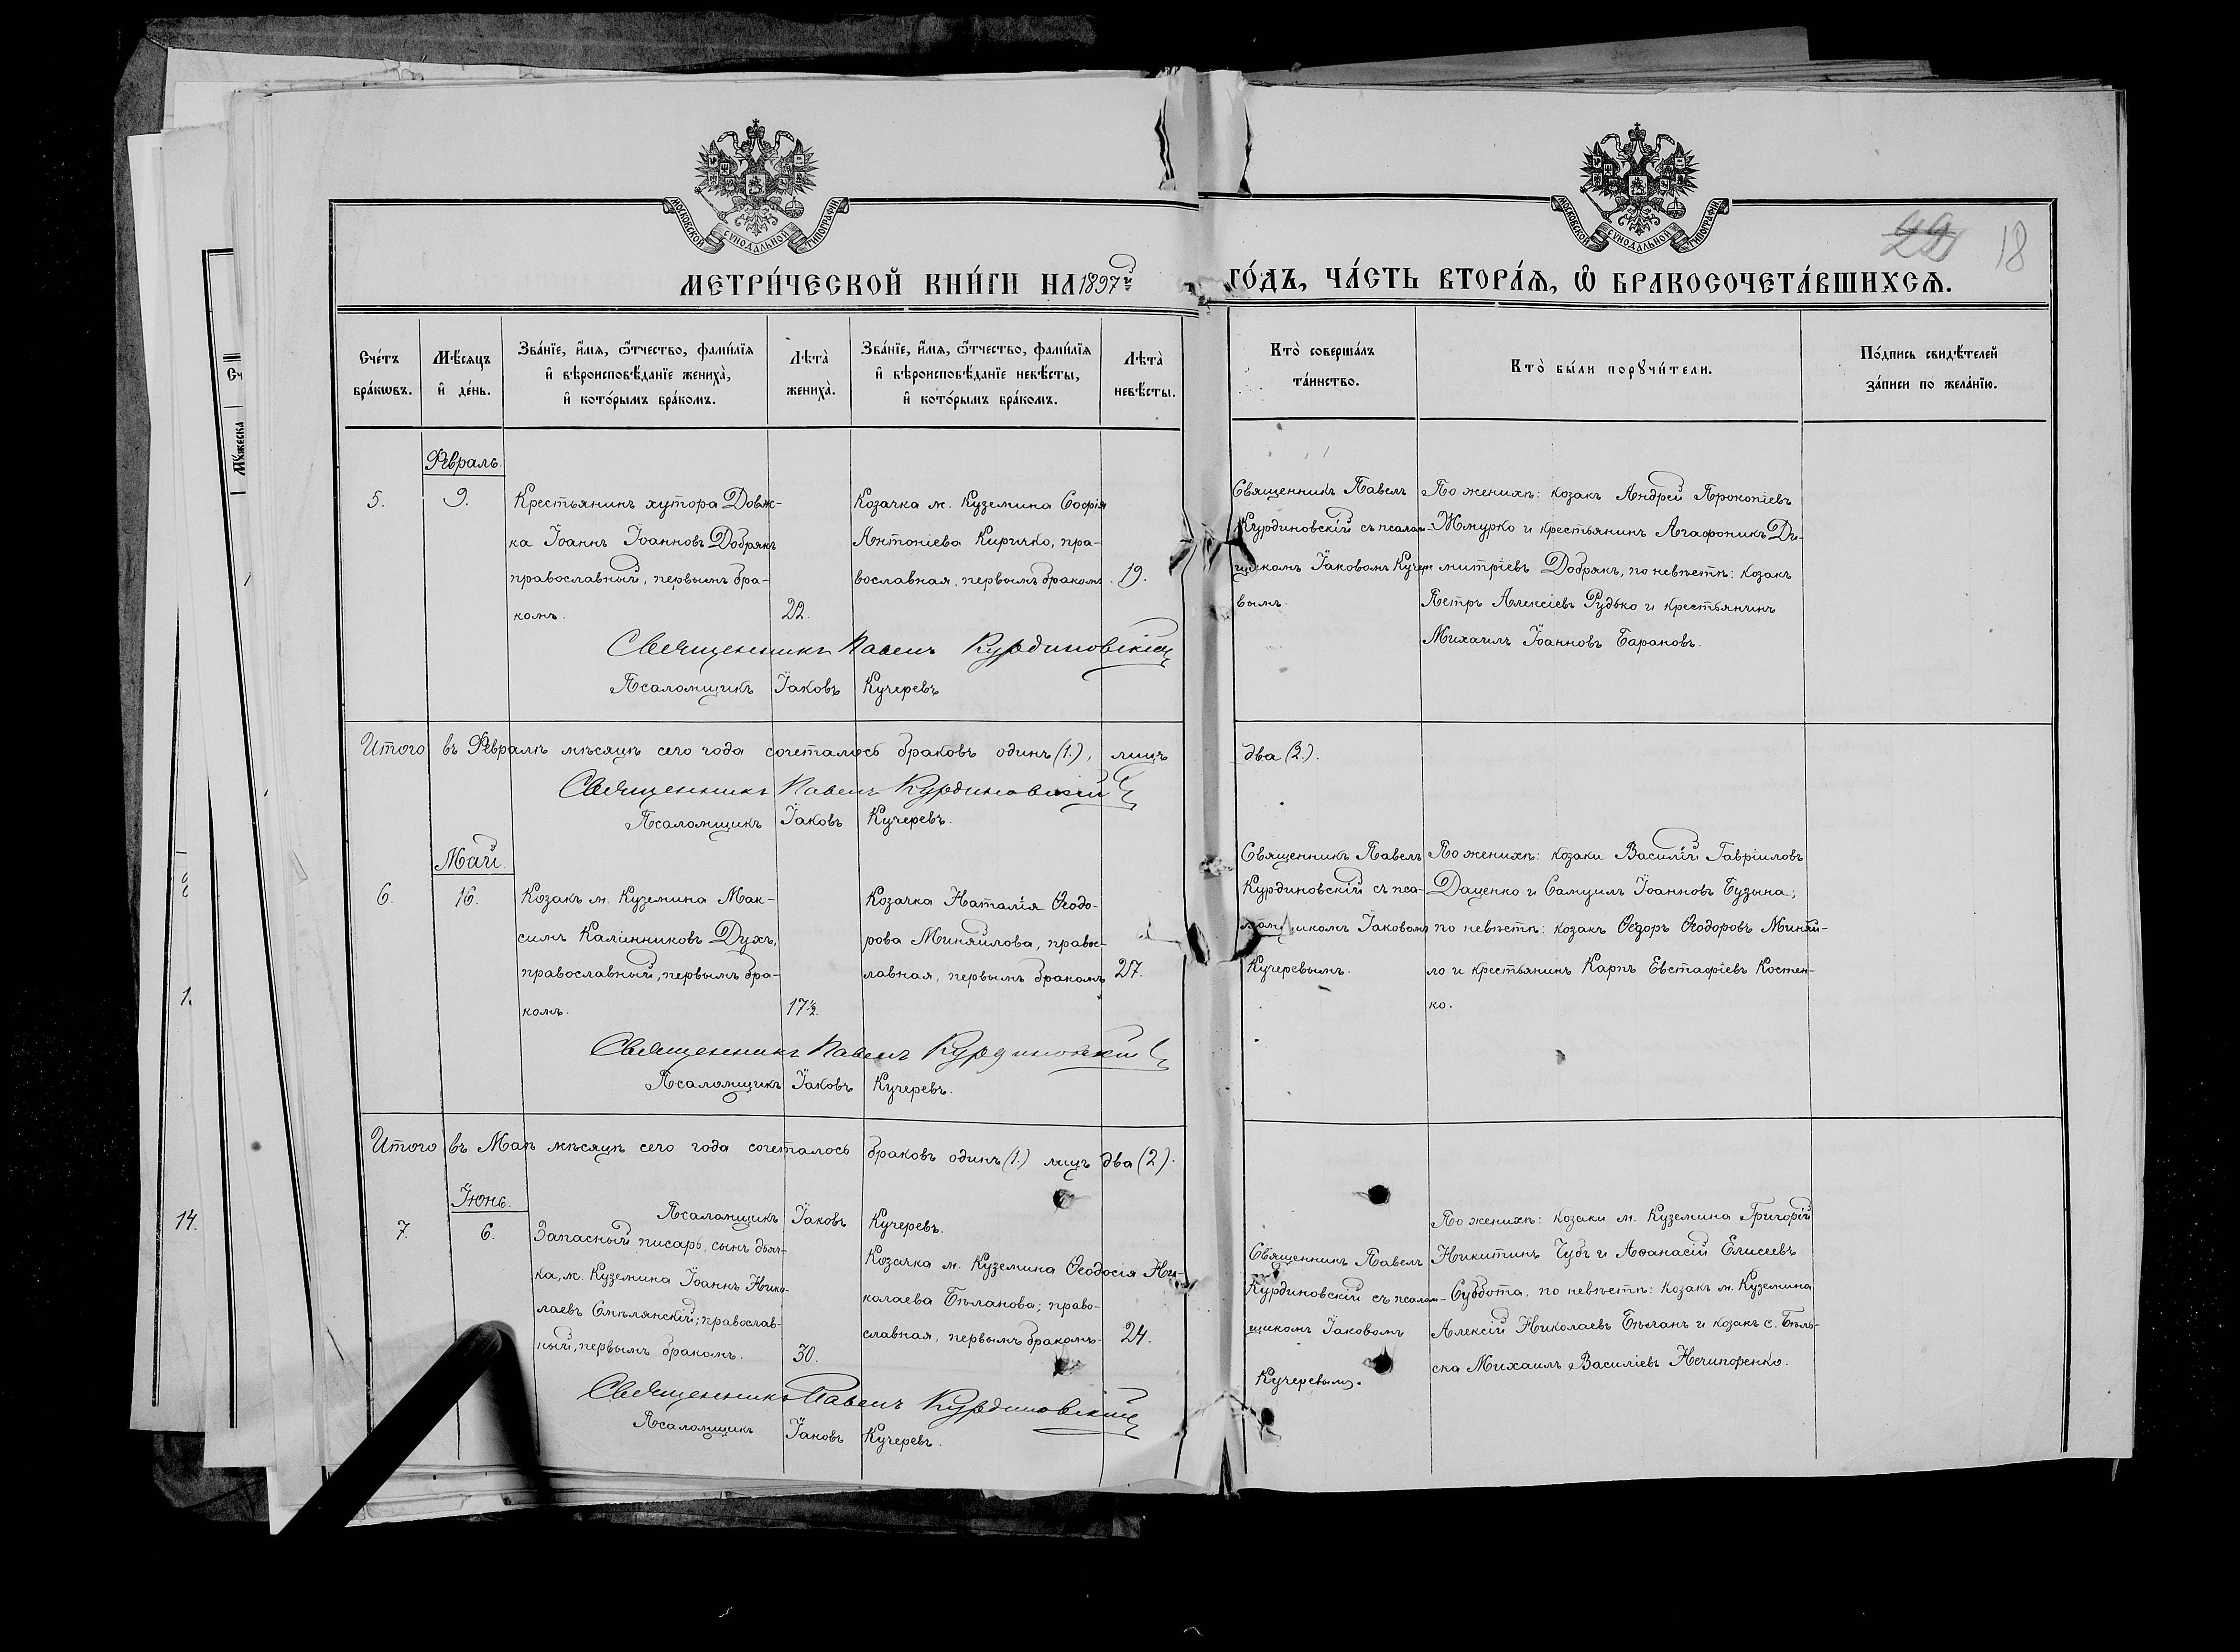 МОСКОВСКОЙ СѴНОДАЛЬНОЙ ТИПОГРАФІИ
МОСКОВСКОЙ СѴНОДАЛЬНОЙ ТИПОГРАФІИ
22 18
МЕТРИ́ЧЕСКОЙ КНИ́ГИ НА 1897й ГО́ДЪ, ЧА́СТЬ ВТОРА́Ѧ, Ѽ БРАКОСОЧЕТА́ВШИХСѦ.
Сче́тъ бра́кѡвъ.
Мѣ́сѧцъ и҆ де́нь.
Зва́нїе, и҆́мѧ, ѻ҆́тчество, фамн́лїѧ
и҆ вѣроисповѣ́данїе жениха̀,
и҆ кото́рымъ бра́комъ.
Лѣта̀ жениха̀.
Зва́нїе, и҆́мѧ, ѻ҆́тчество, фами́лїѧ
и҆ вѣроисповѣ́данїе невѣ́сты,
и҆ кото́рымъ бра́комъ.
Лѣта̀ невѣ́сты.
Кто̀ соверша́лъ
та́инство.
Кто̀ бы́ли порꙋчи́тели.
По́дпись свидѣ́телей
за́писи по жела́нїю.
Февраль.
5. 9.
Крестьянинъ хутора Довж-
ка Іоаннъ Іоанновъ Добрякъ
православный, первымъ бра-
комъ.
22.
Козачка м. Куземина Софія
Антоніева Киричко, пра-
вославная, первымъ бракомъ.
19.
Священникъ Павелъ
Курдиновскій съ псалом-
щикомъ Іаковомъ Кучере-
вымъ.
По женихѣ: козакъ Андрей Прокопіевъ
Жмурко и крестьянинъ Агафоникъ Ди-
митріевъ Добрякъ, по невѣстѣ: козакъ
Петръ Алексіевъ Рудько и крестьянинъ
Михаилъ Іоанновъ Барановъ.
Священникъ Павелъ Курдиновскій
Псаломщикъ Іаковъ Кучеревъ
Итого въ Февралѣ мѣсяцѣ сего года сочеталось браковъ одинъ (1.), лицъ два (2.).
Священникъ Павелъ Курдиновскій
Псаломщикъ Іаковъ Кучеревъ.
Май.
6. 16.
Козакъ м. Куземина Мак-
симъ Калинниковъ Духъ,
православный, первымъ бра-
комъ.
17½.
Козачка Наталія Ѳеодо-
рова Миняйлова, правос-
лавная, первымъ бракомъ
27.
Священникъ Павелъ
Курдиновскій съ пса-
ломщикомъ Іаковомъ
Кучеревымъ.
По женихѣ: козаки Василій Гавріиловъ
Даценко и Самуилъ Іоанновъ Бузына;
по невѣстѣ: козакъ Ѳедоръ Ѳеодоровъ Миняй-
ло и крестьянинъ Карпъ Евстафіевъ Костен-
ко.
Священникъ Павелъ Курдиновскій
Псаломщикъ Іаковъ Кучеревъ.
Итого въ Маѣ мѣсяцѣ сего года сочеталось браковъ одинъ (1.) лицъ два (2).
Псаломщикъ Іаковъ Кучеревъ.
Іюнь.
7. 6.
Запасный писарь, сынъ дьяч-
ка, м. Куземина Іоаннъ Нико-
лаевъ Смѣлянскій; православ-
ный, первымъ бракомъ.
30.
Козачка м. Куземина Ѳеодосія Ни-
колаева Бѣланова; право-
славная, первымъ бракомъ.
24.
Священникъ Павелъ
Курдиновскій съ псалом-
щикомъ Іаковомъ
Кучеревымъ.
По женихѣ: козаки м. Куземина Григорій
Никитинъ Чубъ и Аѳанасій Елисеевъ
Суббота, по невѣстѣ: козакъ м. Куземина
Алексій Николаевъ Бѣланъ и козакъ с. Бѣль-
ска Михаилъ Василіевъ Нечипоренко.
Священникъ Павелъ Курдиновскій
Псаломщикъ Іаковъ Кучеревъ.
Сч
Мꙋ́жеска
1.
14.